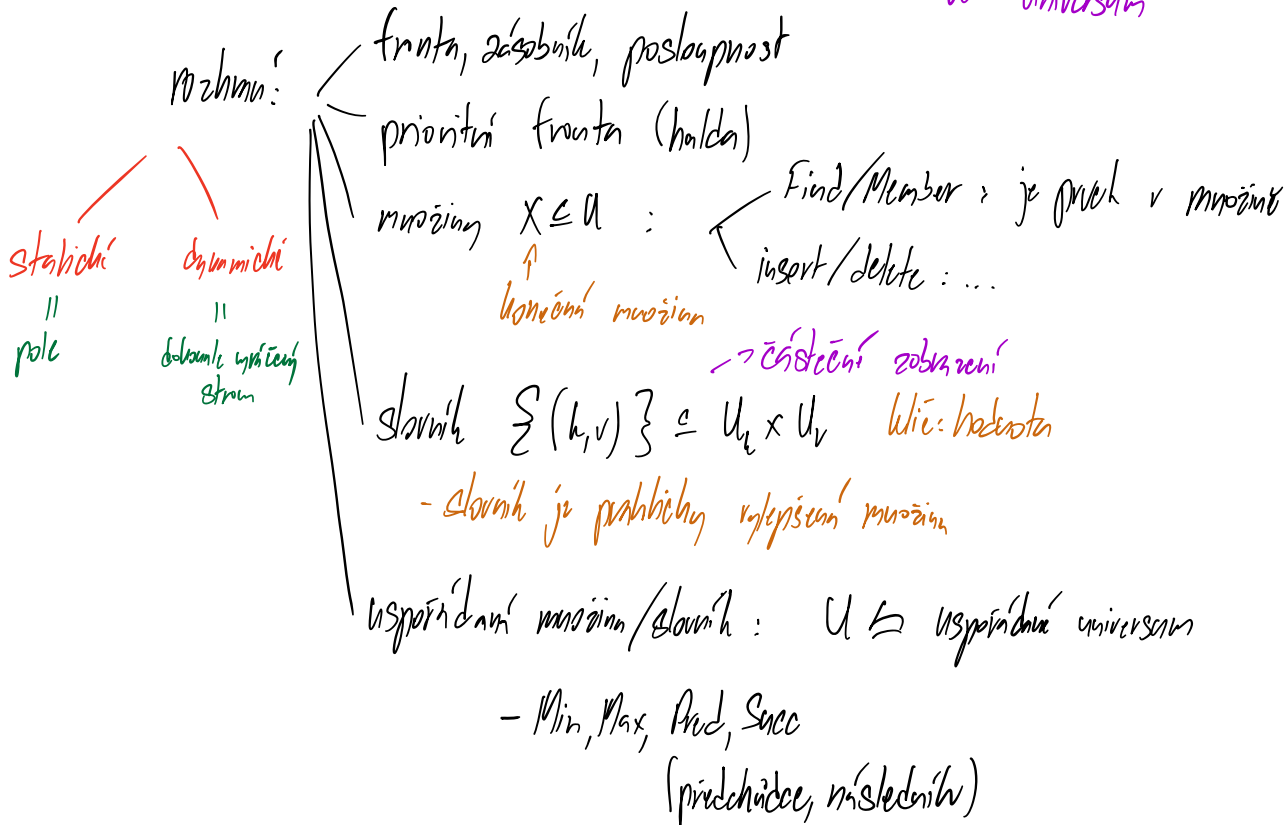 universum
rozhraní:
fronta, zásobník, posloupnost
prioritní fronta (halda)
množiny X ⊆ U :
Find/Member : je prvek v množině
insert/delete : ...
konečná množina
statické
dynamické
||
||
pole
dokonale vyvážený
strom
částeční zobrazení
slovník {(k,v)} ⊆ U_k x U_v
klíč: hodnota
- slovník je prakticky vylepšená množina
uspořádaná množina/slovník : U uspořádané universum
- Min, Max, Pred, Succ
(předchůdce, následník)